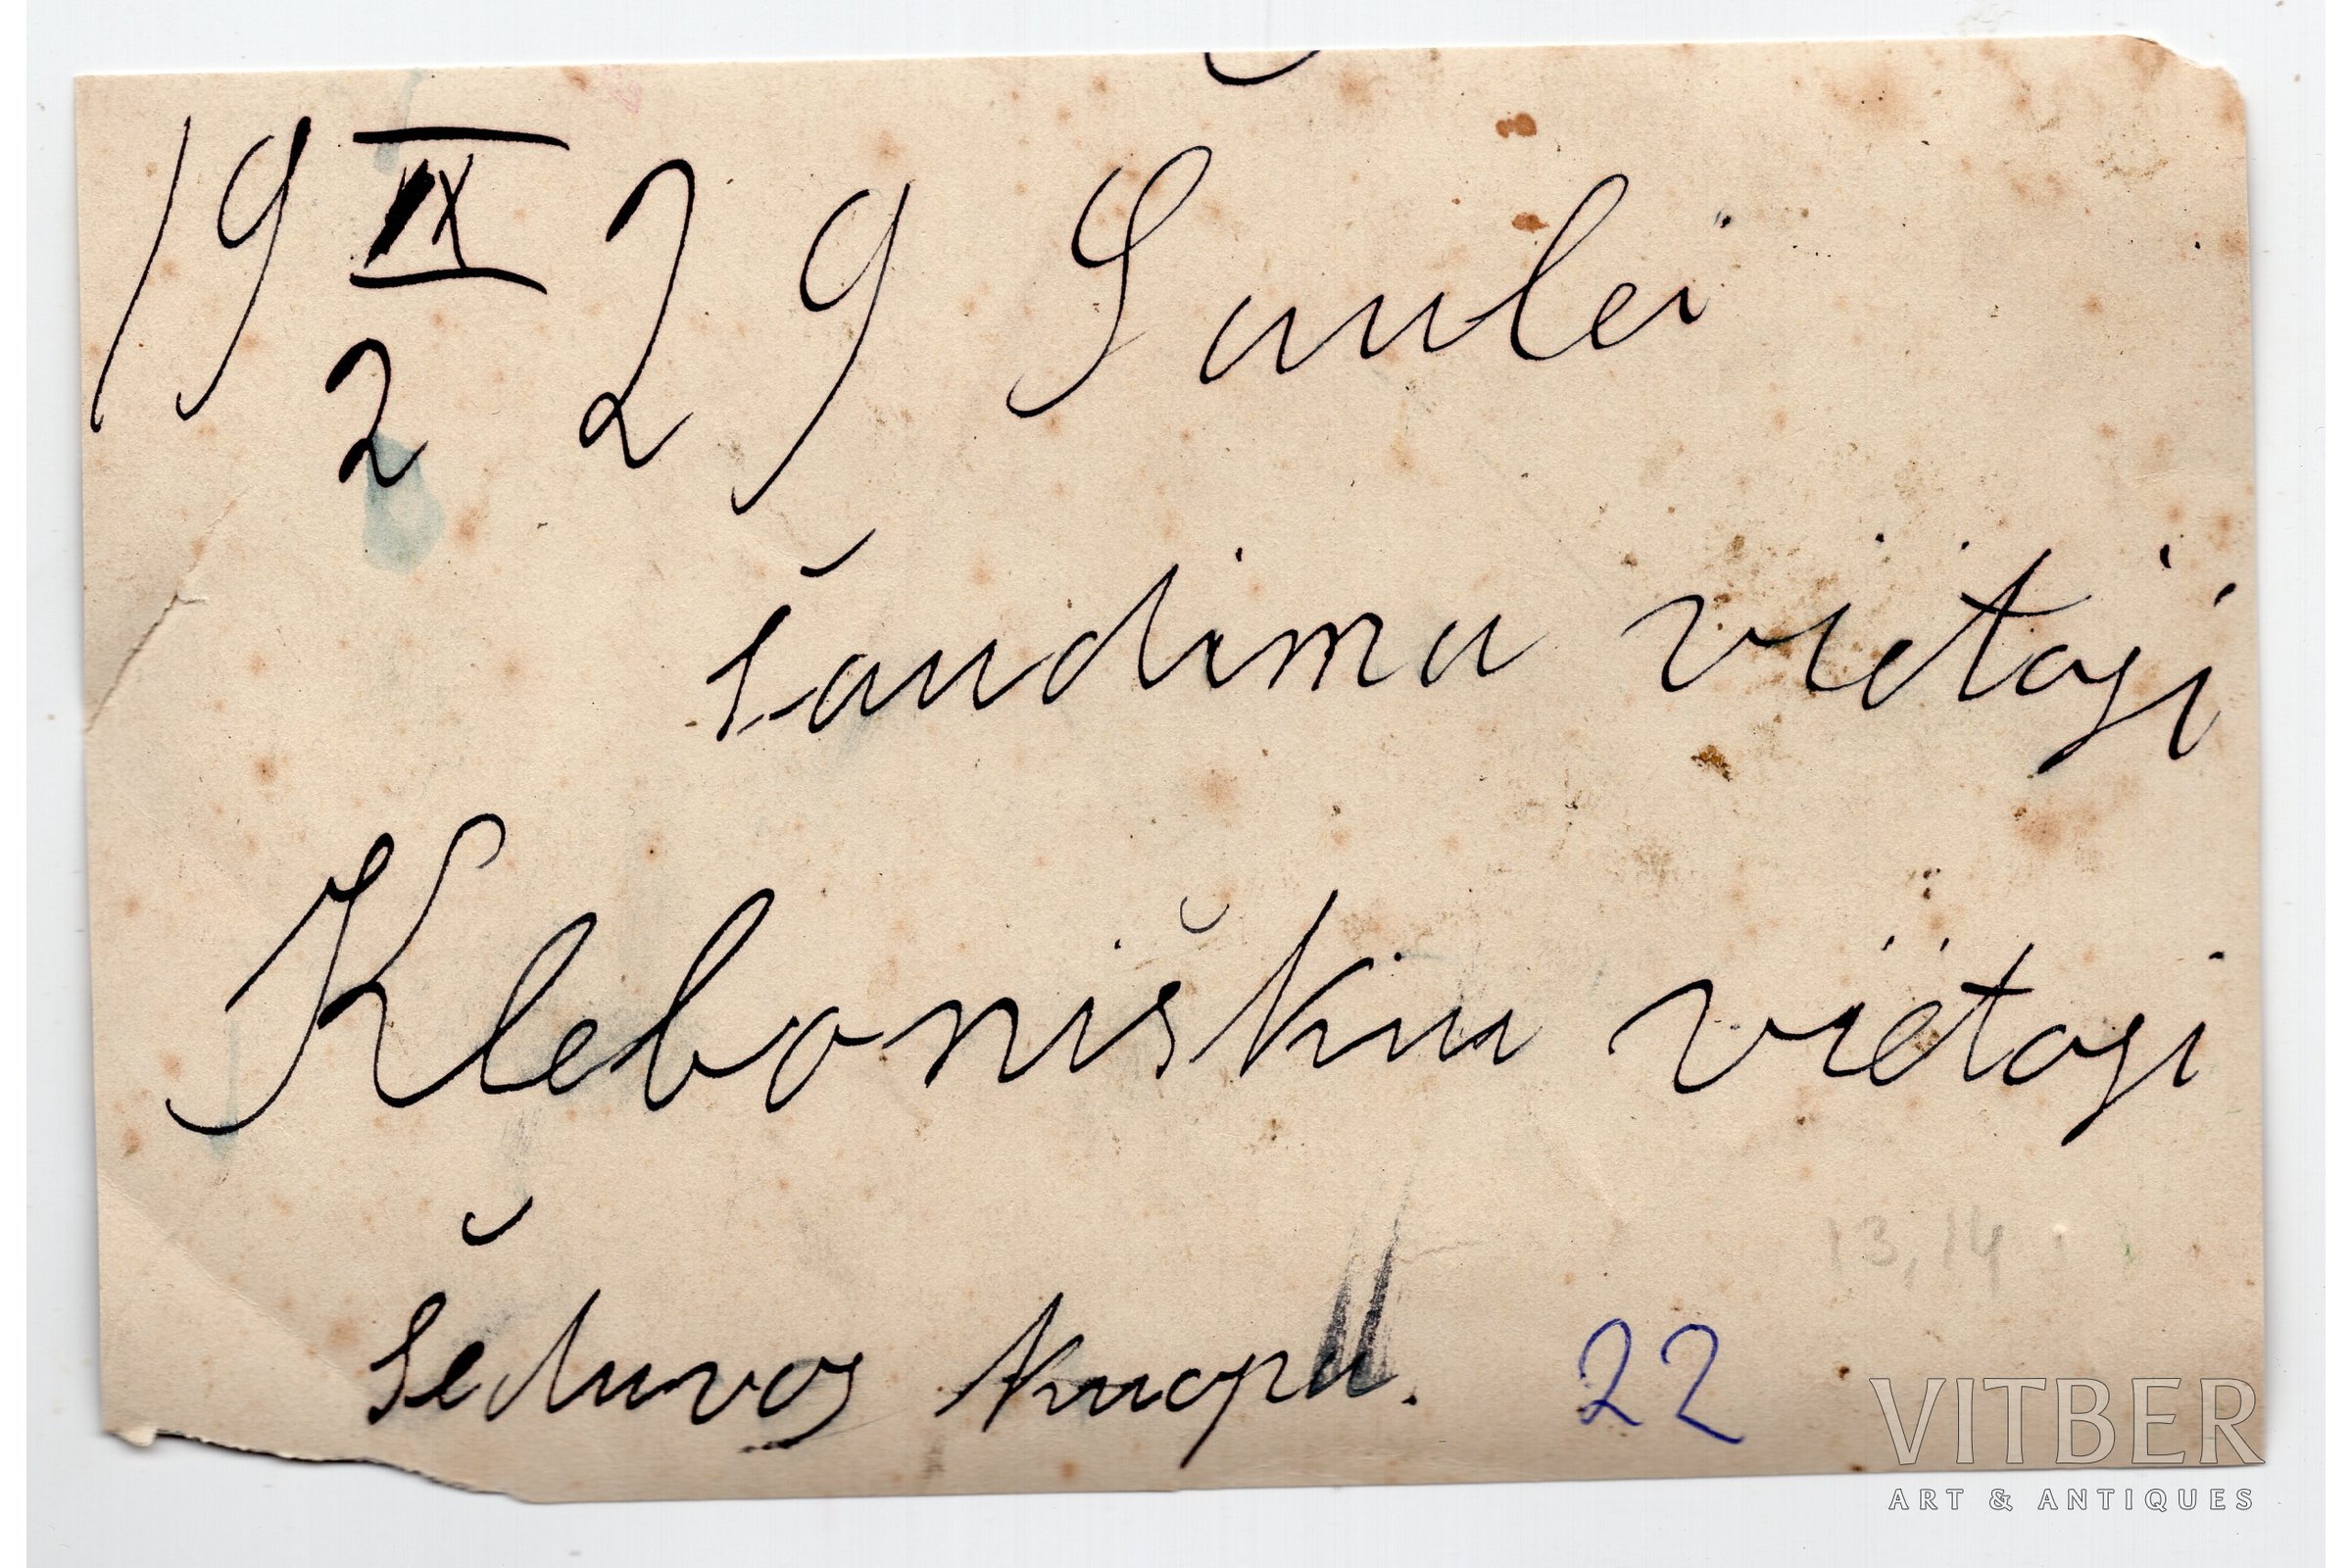 19 IX/2 29 Šaulei
šaudima vietoji
Kleboniškiu vietoji
Šeduvos kuopu.
22
13,14
VITBER
ART & ANTIQUES